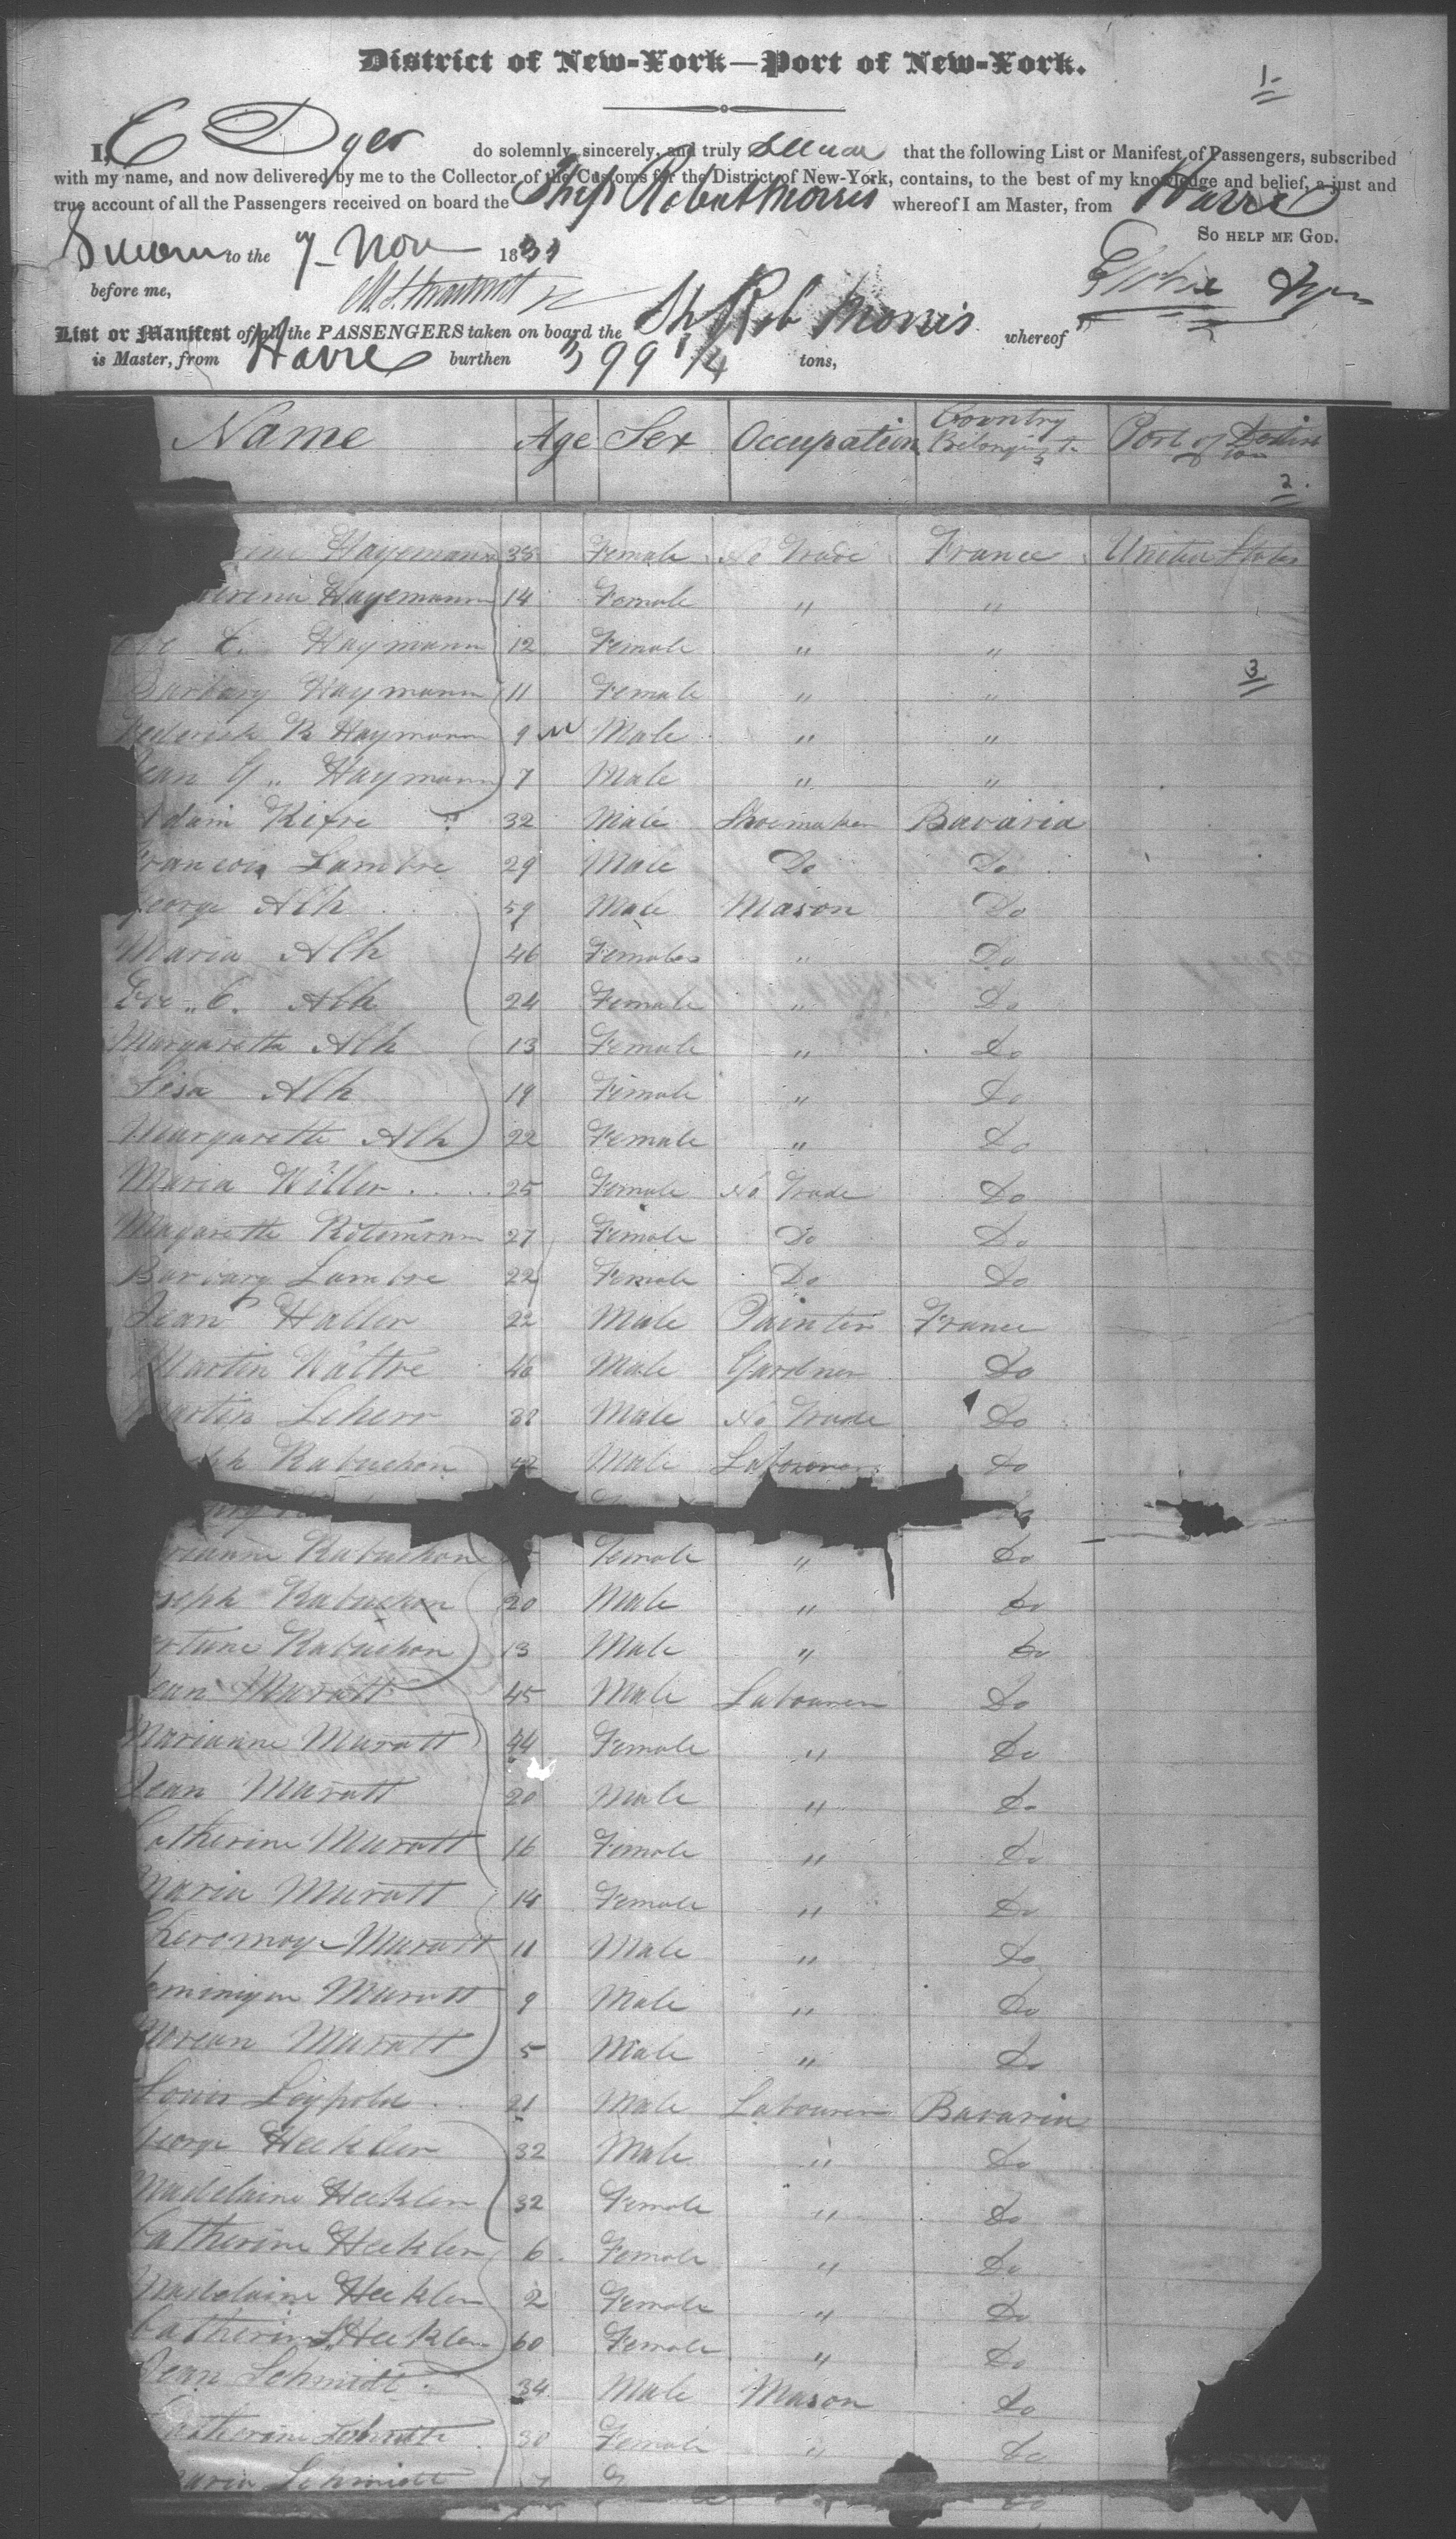 District of New-York—Port of New-York.
1
I, C Dyer do solemnly, sincerely, and truly swear that the following List or Manifest of Passengers, subscribed
with my name, and now delivered by me to the Collector of the Customs for the District of New-York, contains, to the best of my knowledge and belief, a just and
true account of all the Passengers received on board the Ship Robert Morris whereof I am Master, from Havre
So HELP ME GOD.
Sworn to the 7 Nov 1831
before me,
Dyer
List or Manifest of all the PASSENGERS taken on board the Sh Rob Morris whereof
is Master, from Havre burthen 399 1/4 tons,
Name Age Sex Occupation Country Belonging to Port of Destin
2
Hagemann 35 Female No Trade France United States
Hagemann 14 Female " "
C. Haymann 12 Female " "
Barbary Haymann 11 Female " "
3
ederick B Haymann 9 Male " "
ean G Haymann 7 Male " "
dam Kifre 32 Male Shoemaker Bavaria
rancois Lambre 29 Male Do Do
George Alh 59 Male Mason Do
Maria Alh 46 Females " Do
Eve C. Alh 24 Female " Do
Margaretta Alh 13 Female " Do
Lisa Alh 19 Female " Do
Margarette Alh 22 Female " Do
Maria Killer 25 Female No Trade Do
Magarette 27 Female Do Do
Barbary Lambre 22 Female Do Do
Jean Haller 22 Male Painter France
Martin Kaltre 46 Male Gardner Do
artin Scherr 38 Male No Trade Do
ph Rabuchon 42 Male Labourer Do
Do
rianne Rabuchon Female " Do
seph Rabuchon 20 Male " Do
ortune Rabuchon 13 Male " Do
ean Muratt 45 Male Labourer Do
Marianne Muratt 44 Female " Do
Jean Muratt 20 Male " Do
Catherine Muratt 16 Female " Do
Maria Muratt 14 Female " Do
Muratt 11 Male " Do
ominique Muratt 9 Male " Do
Muratt 5 Male " Do
Louis Leypold 21 Male Labourer Bavaria
George Heckler 32 Male " Do
Madelaine Heckler 32 Female " Do
Catherine Heckler 6 Female " Do
Madelaine Heckler 2 Female " Do
Catherine Heckler 60 Female " Do
Jean Schmidt 34 Male Mason Do
Catherine Schmidt 30 Female " Do
aria Schmidt